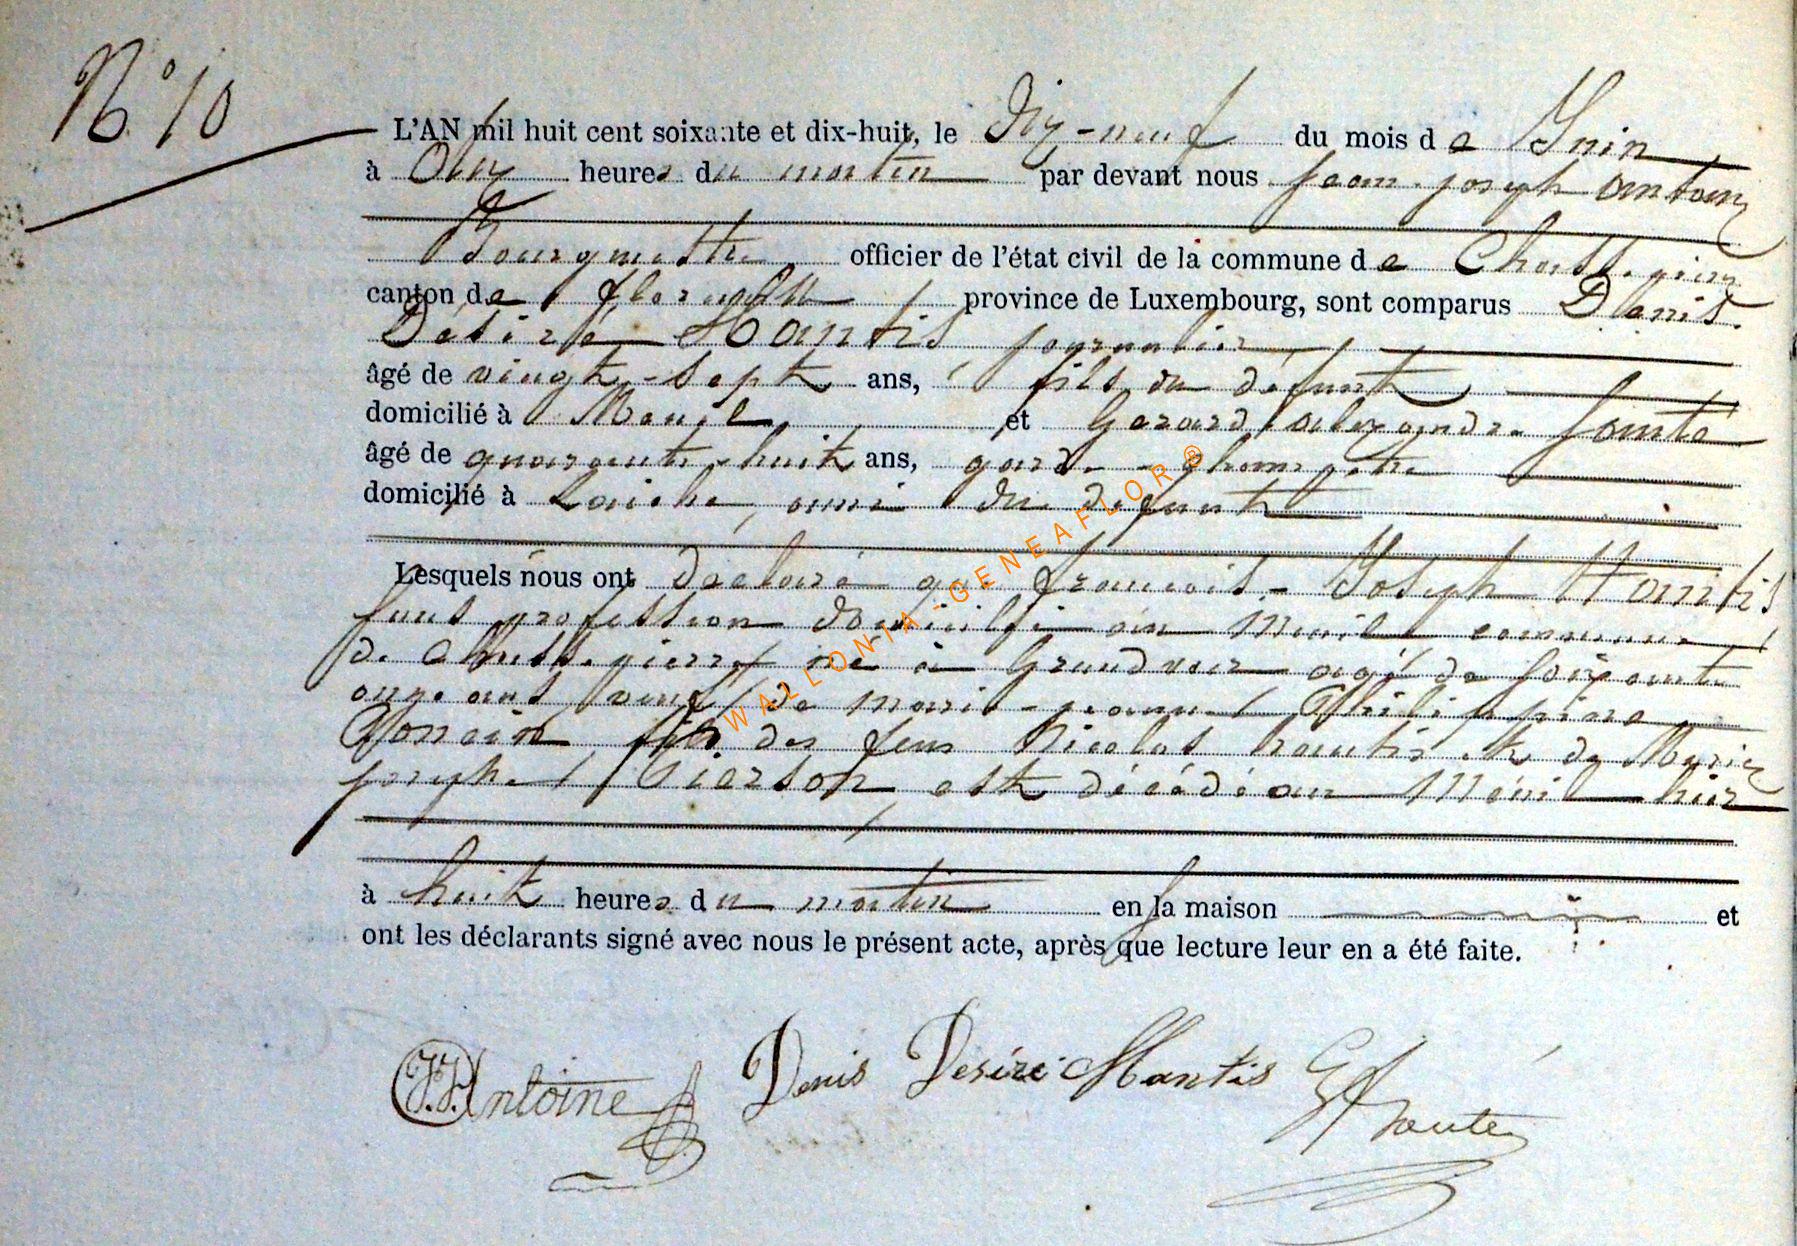 N° 10
L'AN mil huit cent soixante et dix-huit, le Dix-neuf du mois de Juin
à Onze heures du matin par devant nous Jean joseph antoine
Bourgmestre officier de l'état civil de la commune de Chassepierre
canton de florenville province de Luxembourg, sont comparus Denis
Désiré Hantis journalier
âgé de vingt-sept ans, fils du défunt
domicilié à Menil et Gerard alexandre
âgé de quarante-huit ans, garde-champetre
domicilié à Laiche, ami du defunt
Lesquels nous ont déclaré que francois-Joseph Hantis
sans profession domicilié au Menil commune
de Chassepierre né à Grandvoir agé de soixante
onze ans veuf de Marie-jeanne Philippine
fils des feus Nicolas hantis et de Marie
josephe Pierson est décédé au Ménil hier
à huit heures du matin en la maison et
ont les déclarants signé avec nous le présent acte, après que lecture leur en a été faite.
J.J. Antoine Denis Désiré Hantis
WALLONIA-GENEAFLOR®